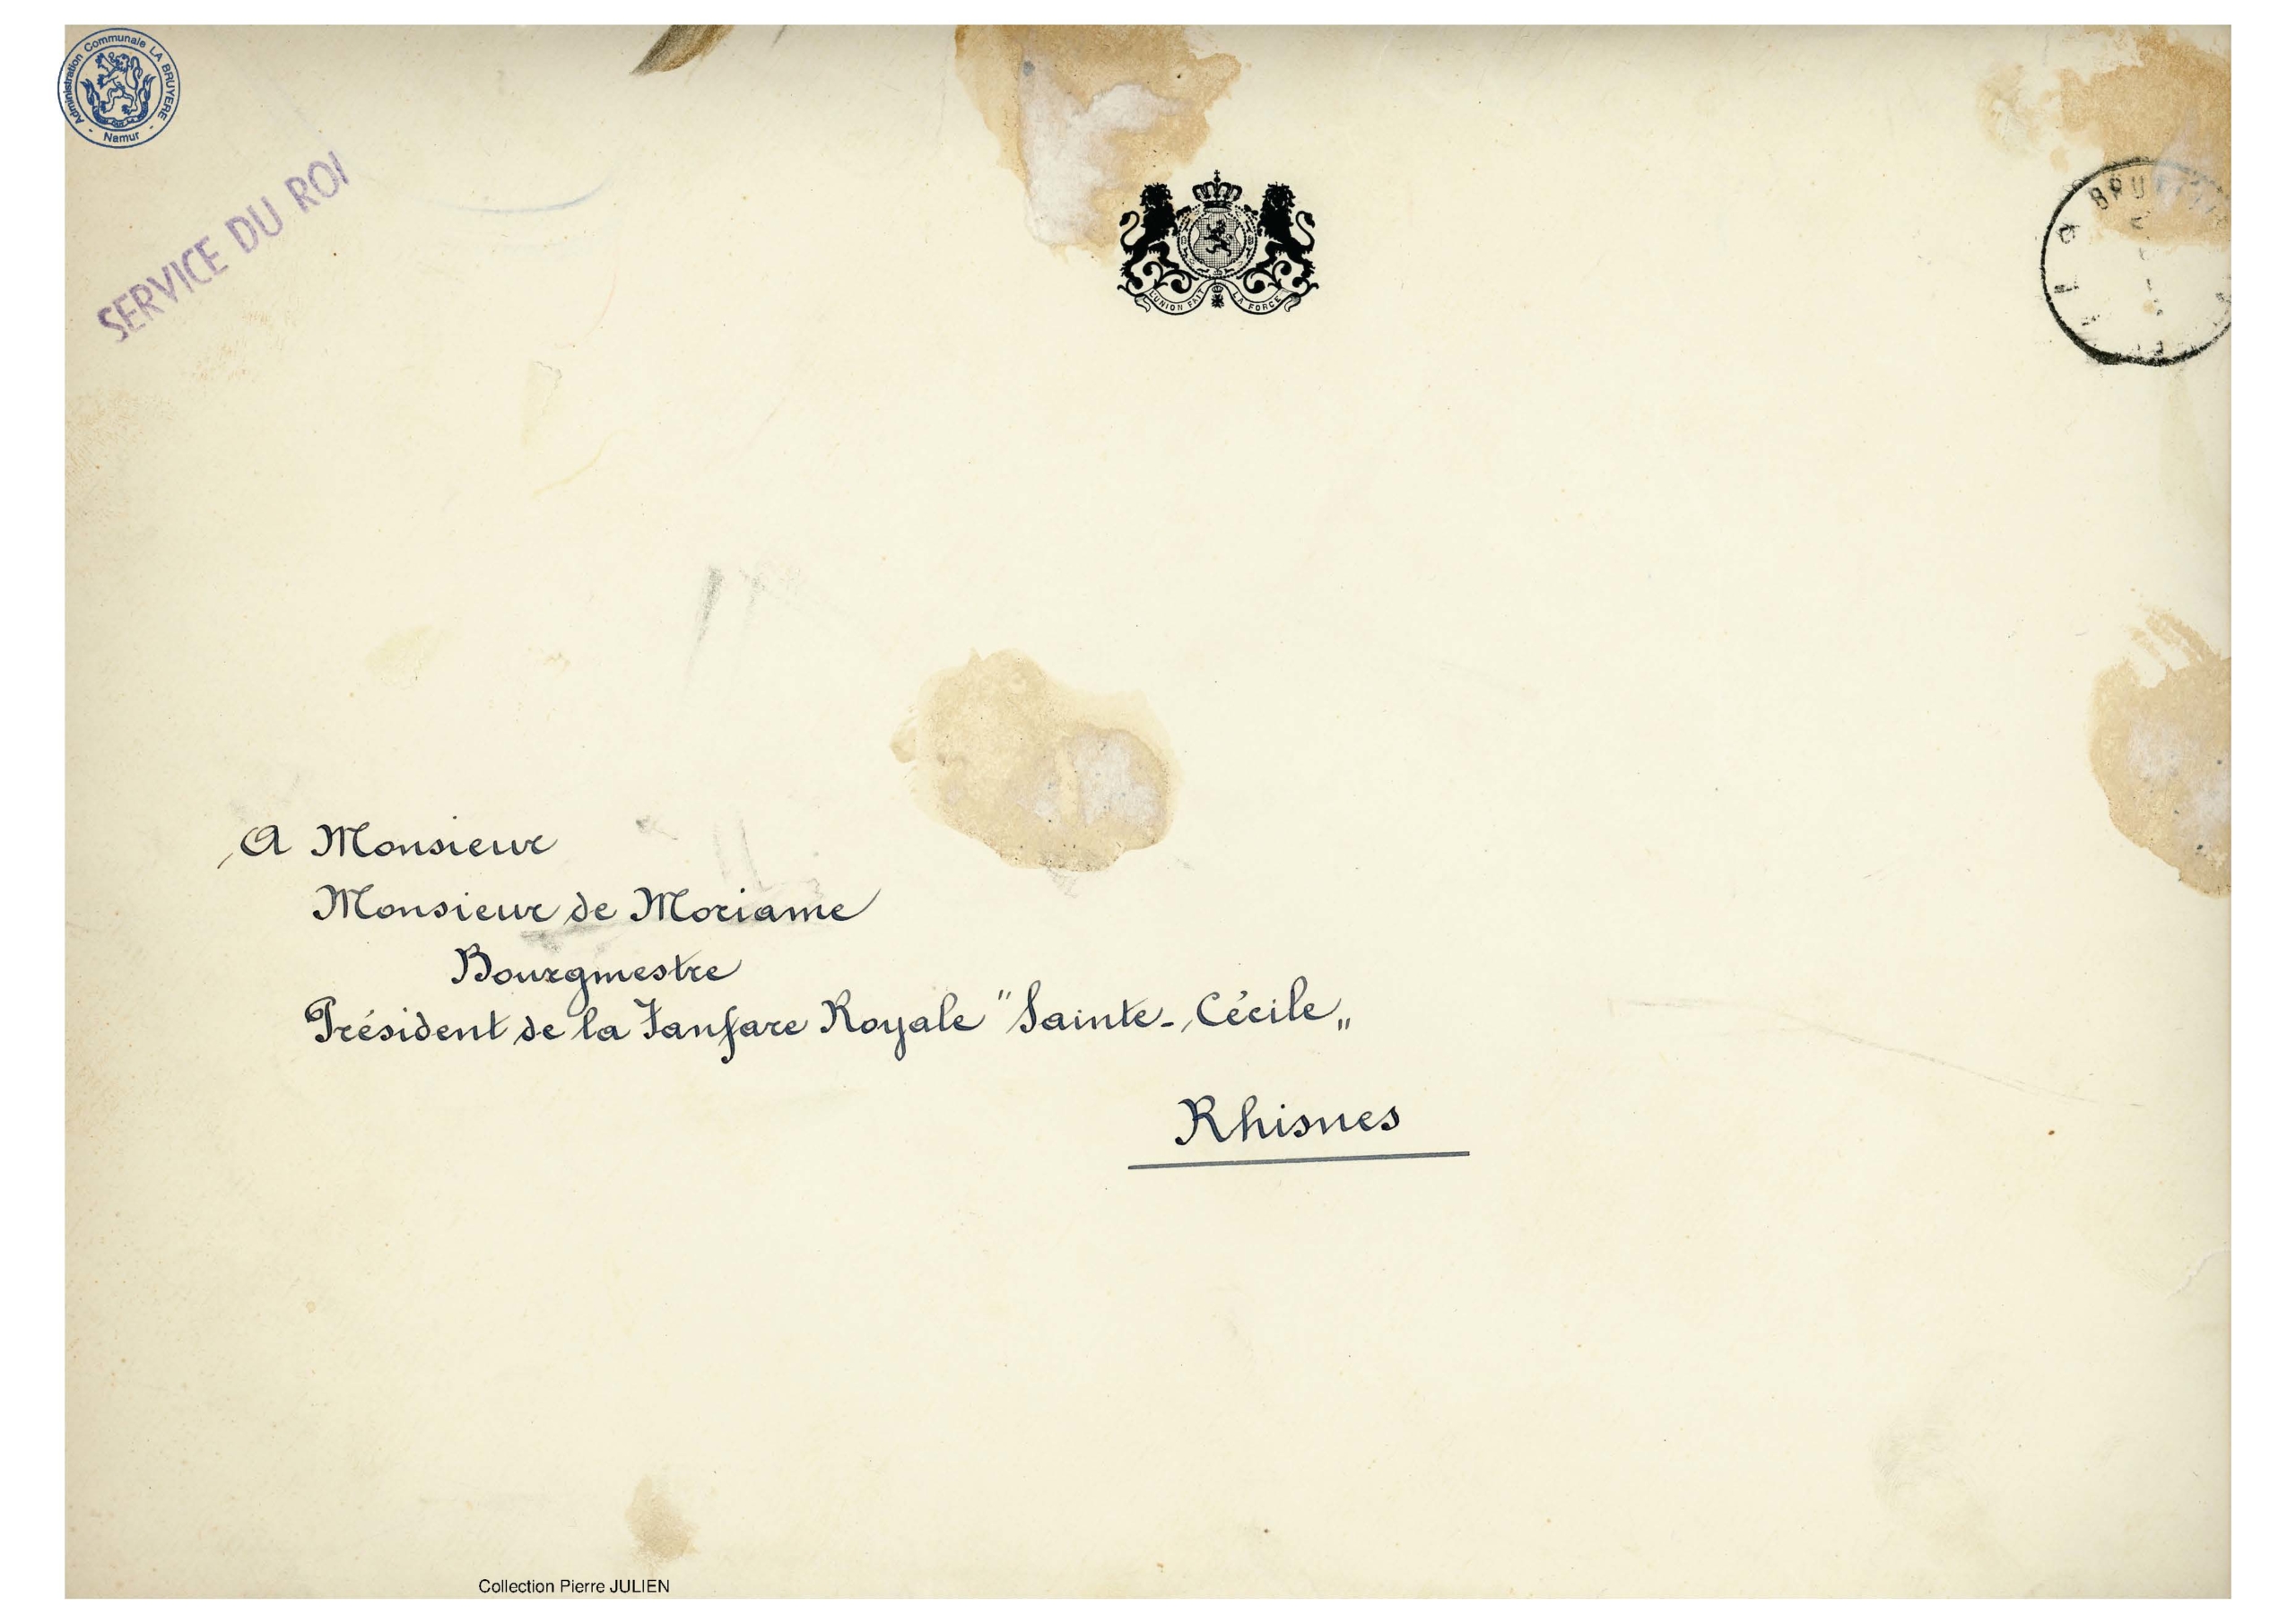 Administration Communale LA BRUYERE
- Namur -
SERVICE DU ROI
L'UNION FAIT LA FORCE
A Monsieur
Monsieur de Moriame
Bourgmestre
Président de la Fanfare Royale "Sainte-Cécile„
Rhisnes
Collection Pierre JULIEN